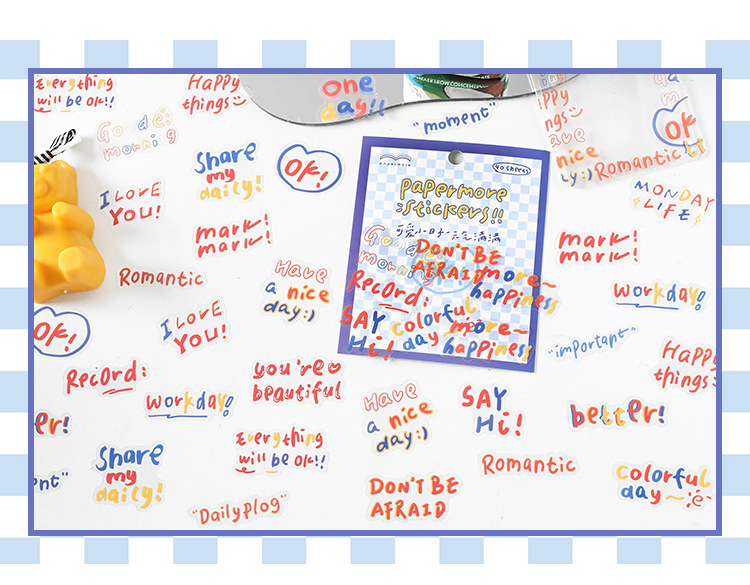 Everything
will be ok!!
Happy
things
one
day!!
"moment"
Happy
things
Have
nice
day:)
Romantic
OK!
Good
morning
Share
my
daily!
OK!
I LOVE
YOU!
mark!
mark!
Romantic
Have
a nice
day:)
papermore
40 sheets
papermore
stickers!!
可爱小日子元气满满
Good
morning
DON'T BE
AFRAID
more~
happiness
Record:
SAY
Hi!
colorful
day
more~
happiness
MONDAY
LIFE
mark!
mark!
workday!
"important"
Happy
things
OK!
I LOVE
YOU!
Record:
workday!
you're
beautiful
Have
a nice
day:)
SAY
Hi!
better!
er!
Everything
will be ok!!
Share
my
daily!
ent"
"Dailyplog"
DON'T BE
AFRAID
Romantic
colorful
day~